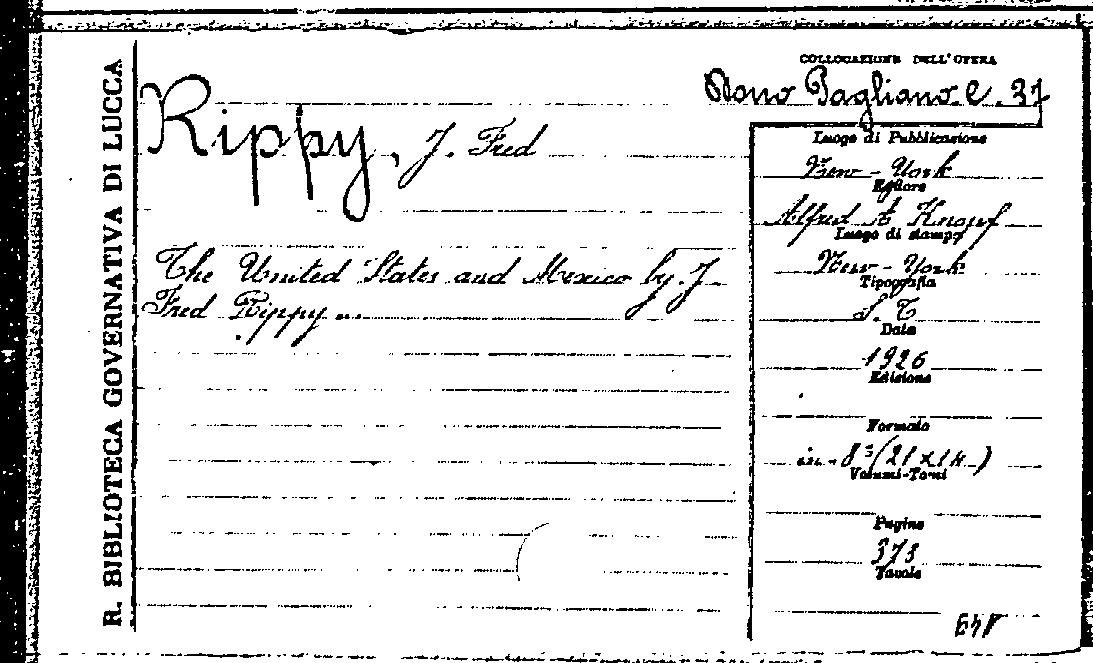 R. BIBLIOTECA GOVERNATIVA DI LUCCA
COLLOCAZIONE DELL'OPERA
Dono Pagliano. C. 37
Rippy, J. Fred
The United States and Mexico by J.
Fred Rippy...
Luogo di Pubblicazione
New-York
Editore
Alfred A Knopf
Luogo di stampa
New-York
Tipografia
S. T
Data
1926
Edizione
Formato
in-8° (21x14)
Volumi-Tomi
Pagine
373
Tavole